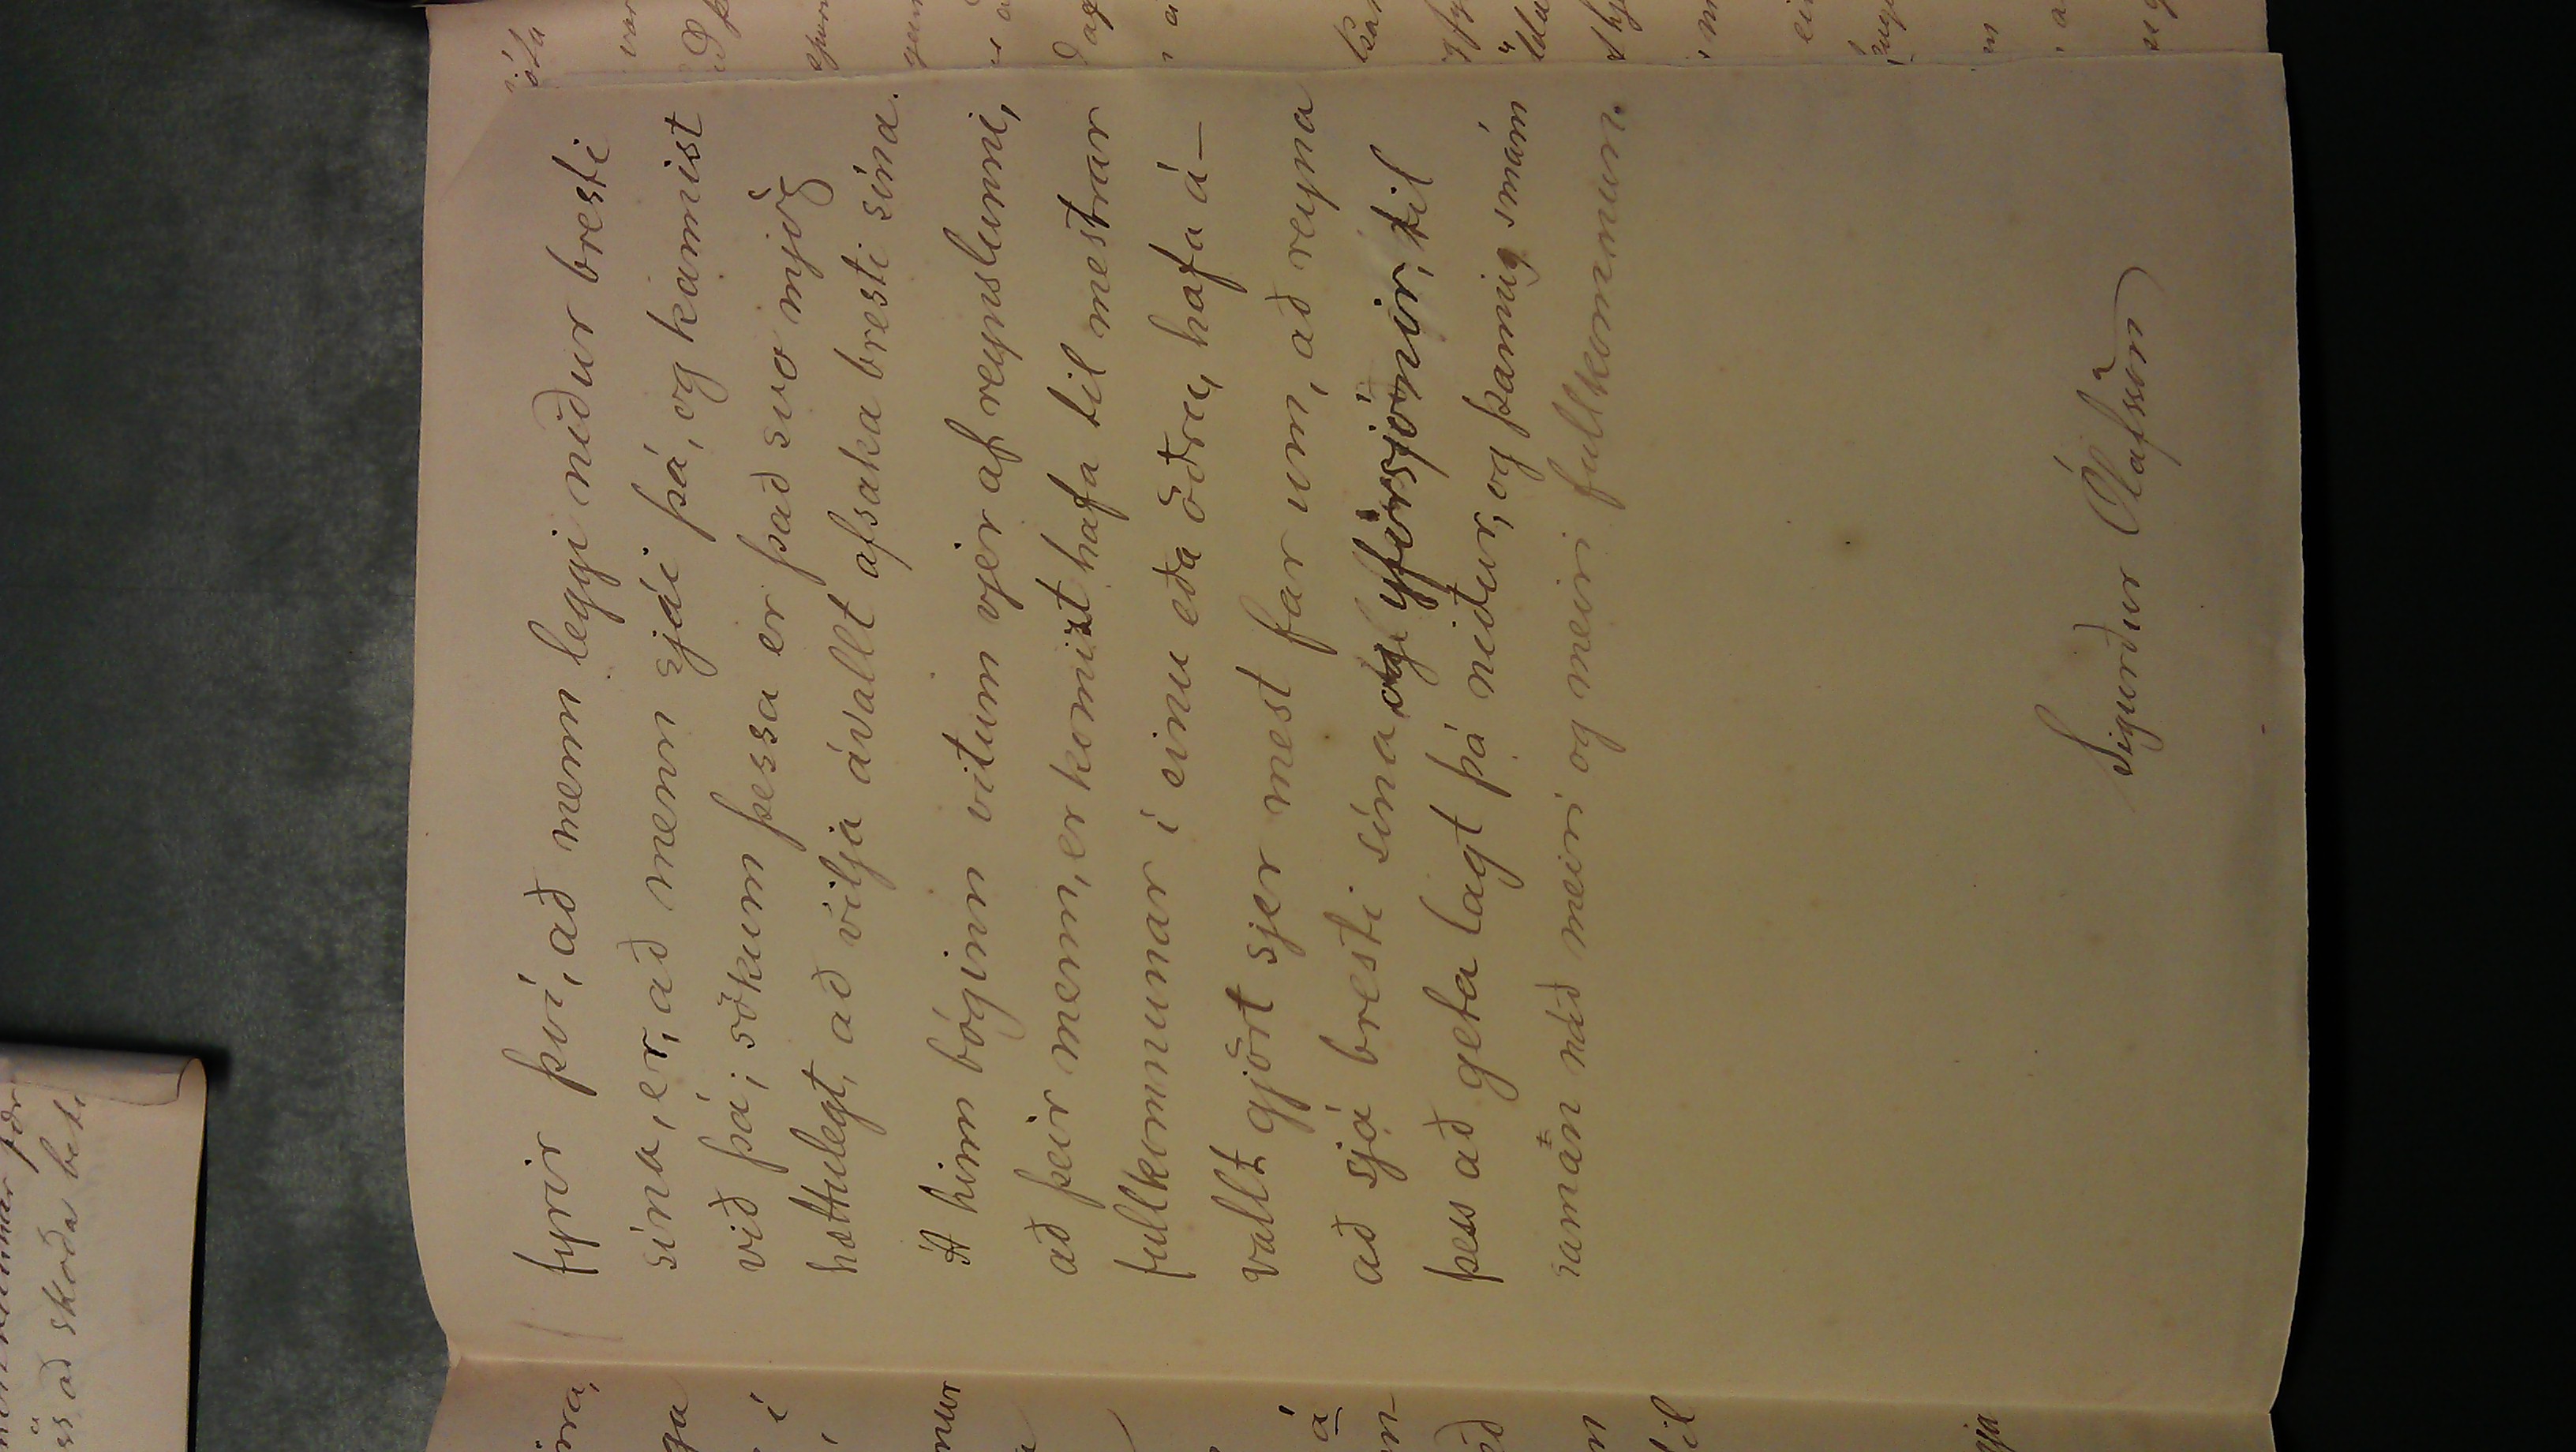 fyrir því, að menn leggi niður bresti
sína, er, að menn sjái þá, og kannist
við þá; sökum þessa er það svo mjög
hættulegt, að vilja ávallt afsaka bresti sína.
Á hinn bóginn vitum vjer af reynslunni,
að þeir menn, er komizt hafa til mestrar
fullkomnunar í einu eða öðru, hafa á-
vallt gjört sjer mest far um, að reyna
að sjá bresti sína og yfirsjónir, til
þess að geta lagt þá niður, og þannig smám
saman náð meiri og meiri fullkomnun.
Sigurður Ólafsson